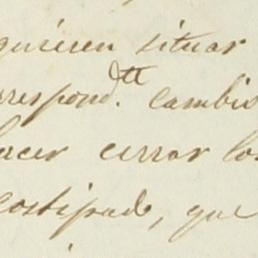 quieren situar
rrespond.te cambio
hacer cerrar los
costipado, que